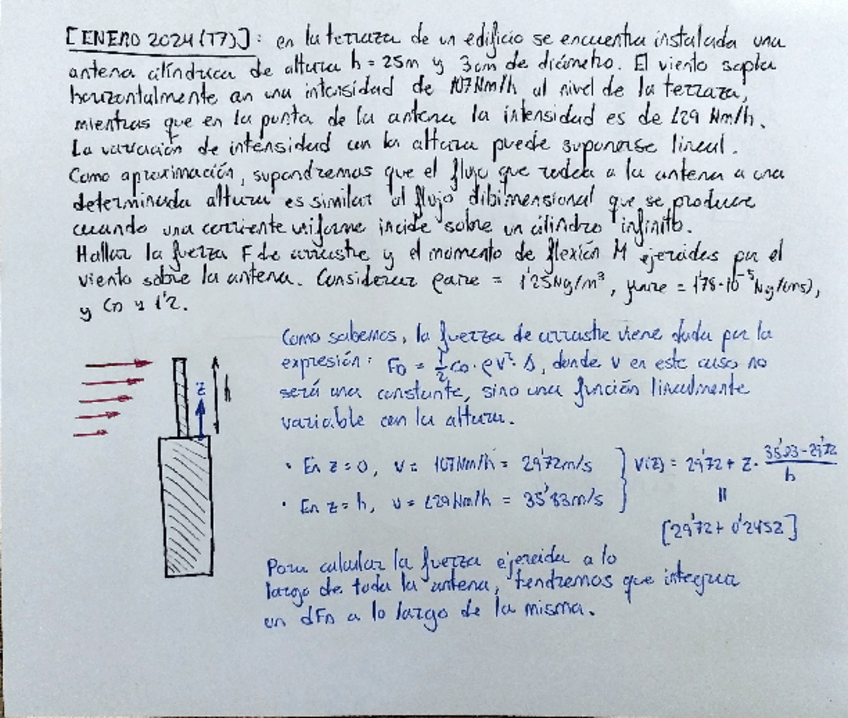 [ENERO 2024 (T7)]: en la terraza de un edificio se encuentra instalada una
antena cilíndrica de altura h = 25m y 3cm de diámetro. El viento sopla
horizontalmente con una intensidad de 107 Km/h al nivel de la terraza,
mientras que en la punta de la antena la intensidad es de 129 Km/h.
La variación de intensidad con la altura puede suponerse lineal.
Como aproximación, supondremos que el flujo que rodea a la antena a una
determinada altura es similar al flujo bidimensional que se produce
cuando una corriente uniforme incide sobre un cilindro infinito.
Hallar la fuerza F de arrastre y el momento de flexión M ejercidos por el
viento sobre la antena. Considerar ρaire = 1'25 Kg/m³, μaire = 1'78·10⁻⁵ Kg/(ms),
y CD ≃ 1'2.
Como sabemos, la fuerza de arrastre viene dada por la
expresión: FD = 1/2 CD · ρ V² · S, donde v en este caso no
será una constante, sino una función linealmente
variable con la altura.
z
h
· En z = 0, v = 107 Km/h = 29'72 m/s
· En z = h, v = 129 Km/h = 35'83 m/s
} V(z) = 29'72 + z · (35'83 - 29'72)/h
=
[29'72 + 0'245z]
Para calcular la fuerza ejercida a lo
largo de toda la antena, tendremos que integrar
un dFD a lo largo de la misma.